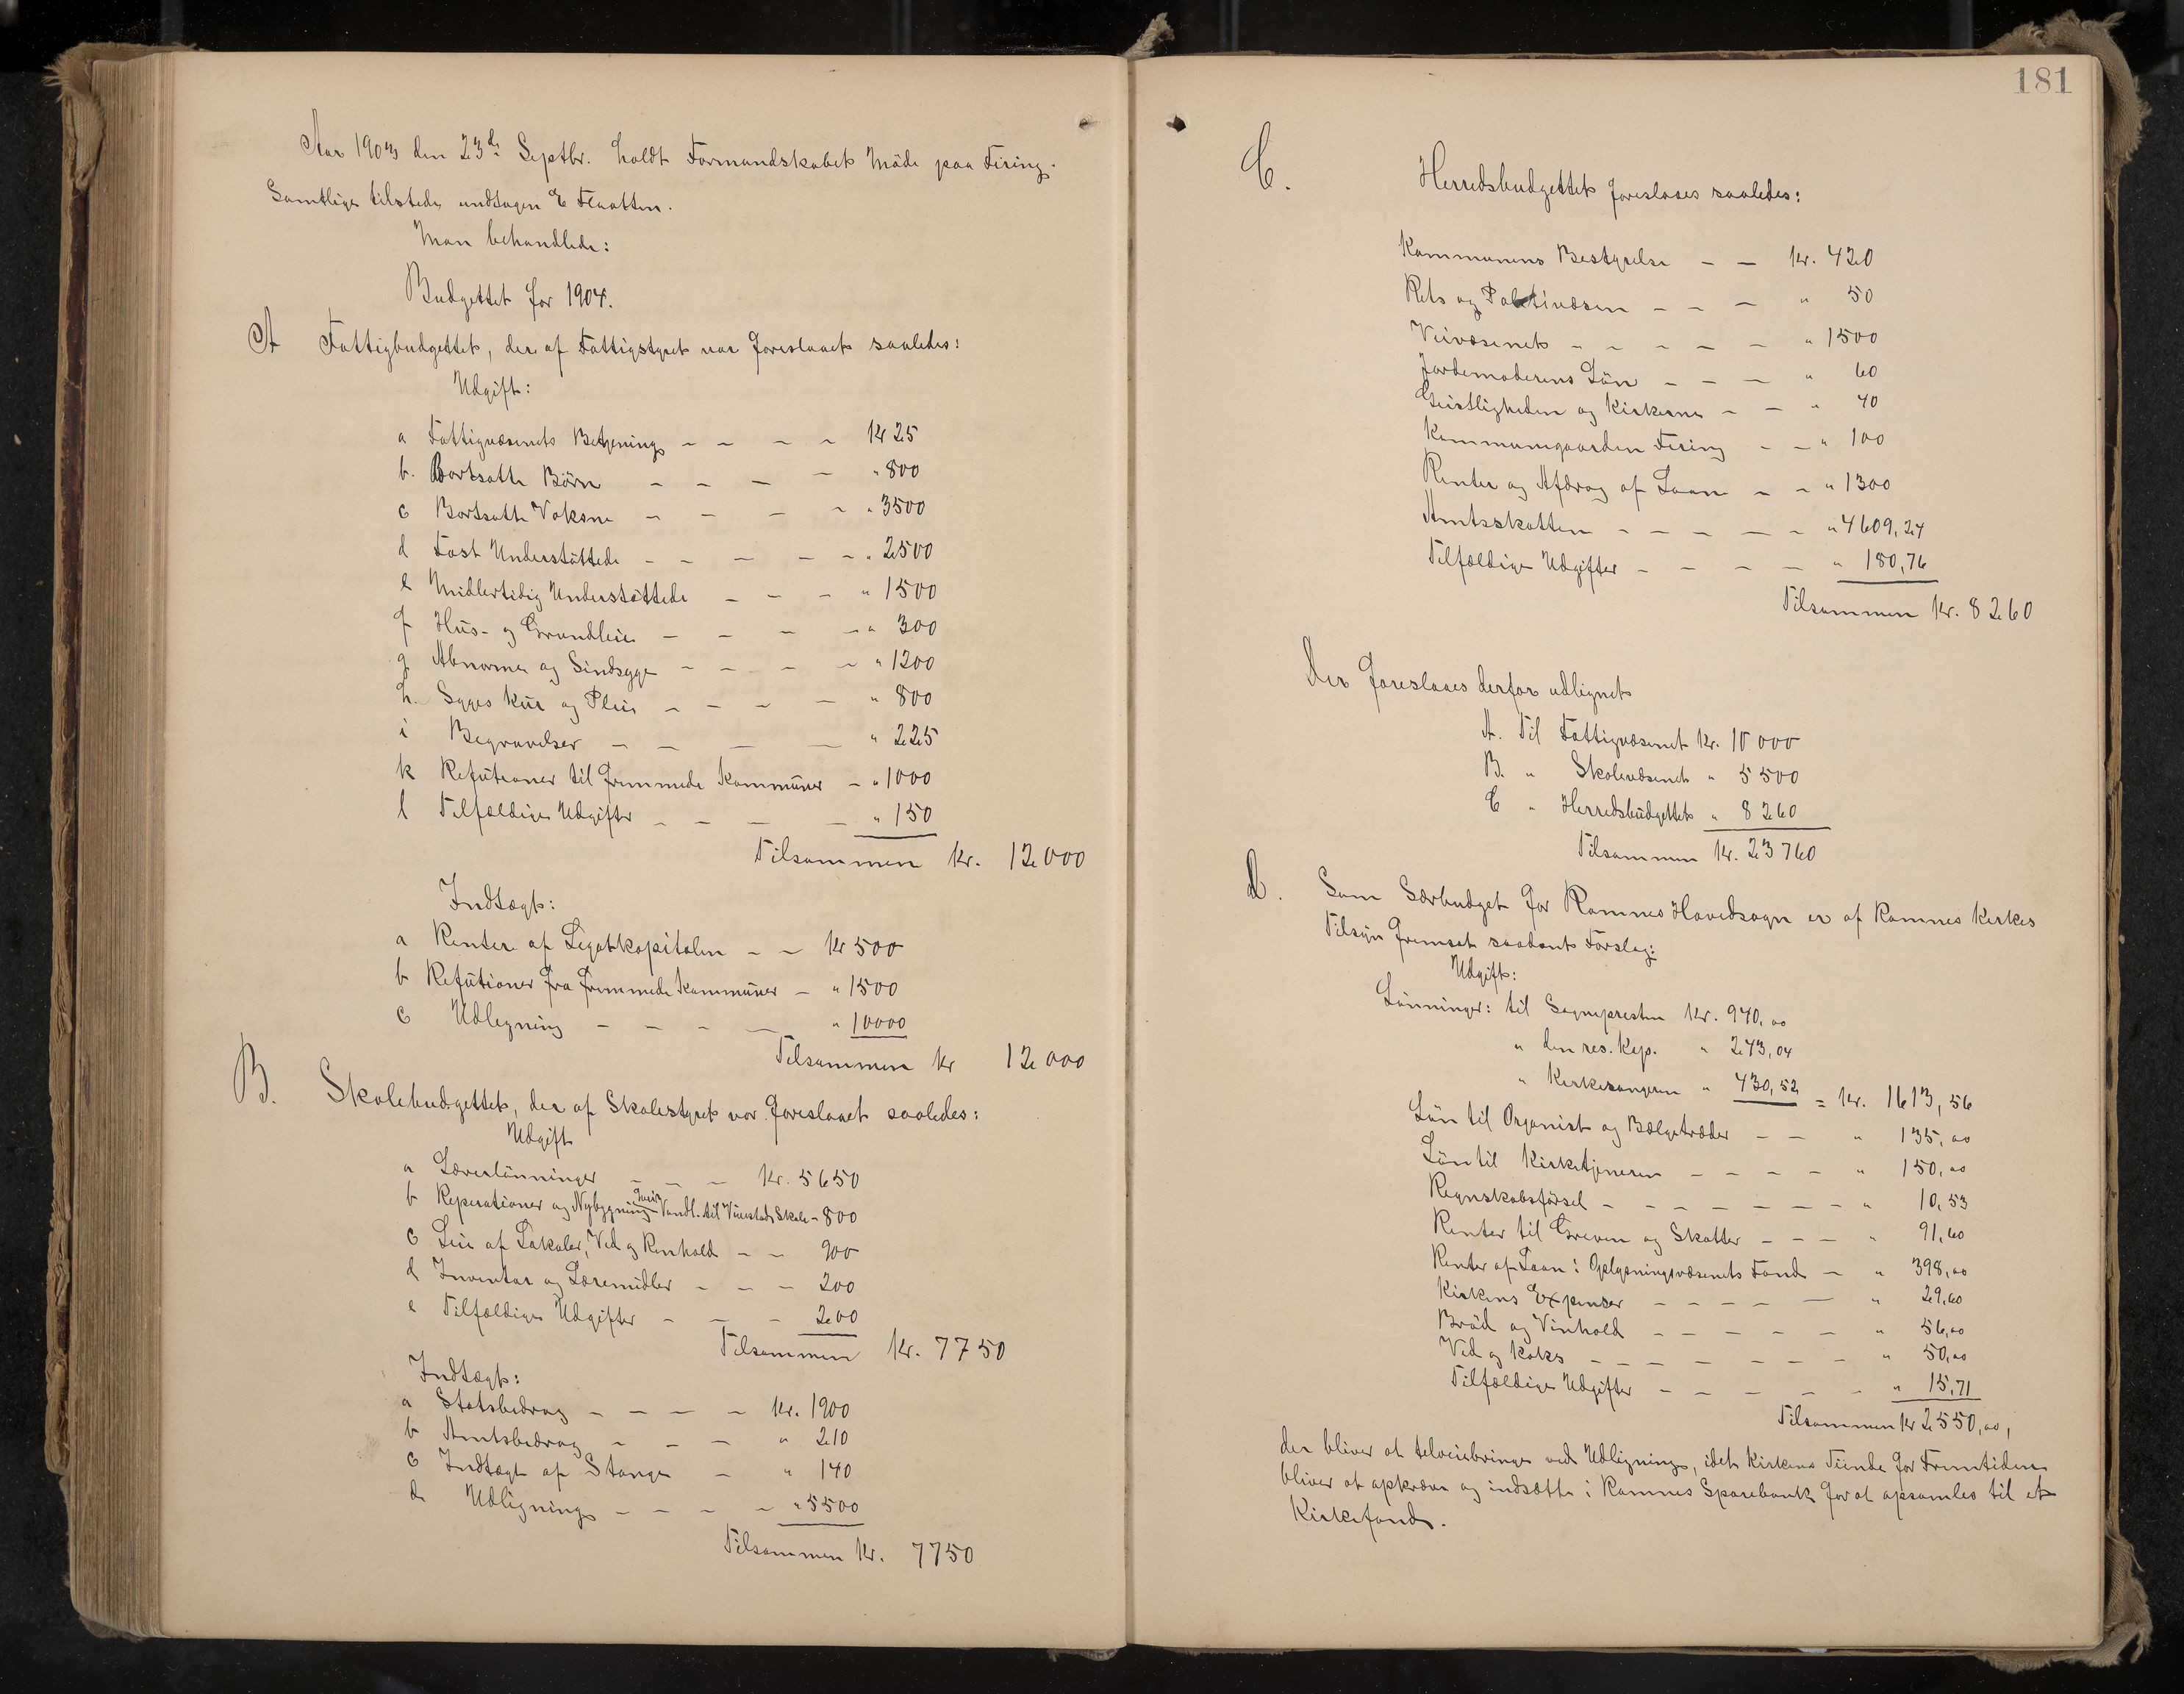 Aar 1903 den 23de Septbr. holdt Formandskabet Møde paa Firing.
Samtlige tilstede, undtagen E Flaatten.
Man behandlede:
Budgettet for 1904.
A Fattigbudgettet, der af Fattigstyret var foreslaaet saaledes:
Udgift:
a Fattigvæsenets Betjening – – – – Kr 25
b. Bortsatte Børn – – – – " 800
c Bortsatte Voksne – – – – " 3500
d Fast Understøttede – – – – – " 2500
e Midlertidig Understøttede – – – " 1500
f Hus- og Grundleie – – – – " 300
g Abnorme og Sindsyge – – – – " 1200
h. Syges Kur og Pleie – – – – " 800
i Begravelser – – – – " 225
k Refutioner til fremmede Kommuner – " 1000
l Tilfældige Udgifter – – – – " 150
Tilsammen Kr. 12000
Indtægt:
a Renter af Legatkapitalen – – Kr 500
b Refutioner fra fremmede Kommuner – " 1500
c Udligning – – – – " 10000
Tilsammen Kr 12000
B. Skolebudgettet, der af Skolestyret var foreslaaet saaledes:
Udgift
a Lærerlønninger – – – Kr. 5650
b Reperationer og Nybygning Vandl. til Skole – 800
c Leie af Lokaler, Ved og Renhold – – 900
d Inventar og Læremidler – – – 200
e Tilfældige Udgifter – – – 200
Tilsammen Kr. 7750
Indtægt:
a Statsbidrag – – – – Kr. 1900
b Amtsbidrag – – – " 210
c Indtægt af Stange – " 140
d Udligning – – – – " 5500
Tilsammen Kr. 7750
181
C. Herredsbudgettet foreslaaes saaledes:
Kommunens Bestyrelse – – Kr. 420
Rets og Politivæsen – – – " 50
Veivæsenet – – – – – " 1500
Jordemoderens Løn – – – " 60
Geistligheden og Kirkerne – – " 40
Kommunegaarden Firing – – " 100
Renter og Afdrag af Laan – – " 1300
Amtsskatten – – – – – " 4609,24
Tilfældige Udgifter – – – – " 180,76
Tilsammen Kr. 8260
Der foreslaaes derfor udlignet
A. Til Fattigvæsenet Kr. 10000
B. " Skolevæsenet " 5500
C " Herredsbudgettet " 8260
Tilsammen Kr. 23760
D. Som Særbudget for Ramnes Hovedsogn er af Ramnes Kirkes
Tilsyn fremsat saadant Forslag:
Udgift:
Lønninger: til Sognepresten Kr. 940,00
" den res. Kap. " 243,04
" Kirkesangeren " 430,52 = Kr. 1613,56
Løn til Organist og Bælgetræder – – " 135,00
Løn til Kirketjeneren – – – – " 150,00
Regnskabsførsel – – – – – – – " 10,53
Renter til Greven og Skatter – – – " 91,60
Renter af Laan i Oplysningsvæsenets Fond – " 398,00
Kirkens Expenser – – – – – " 29,60
Brød og Vinhold – – – – – " 56,00
Ved og Koks – – – – – – – " 50,00
Tilfældige Udgifter – – – – – " 15,71
Tilsammen Kr 2550,00,
der bliver at tilveiebringe ved Udligning, idet Kirkens Tiende for Fremtiden
bliver at opkræve og indsætte i Ramnes Sparebank for at opsamles til et
Kirkefond.